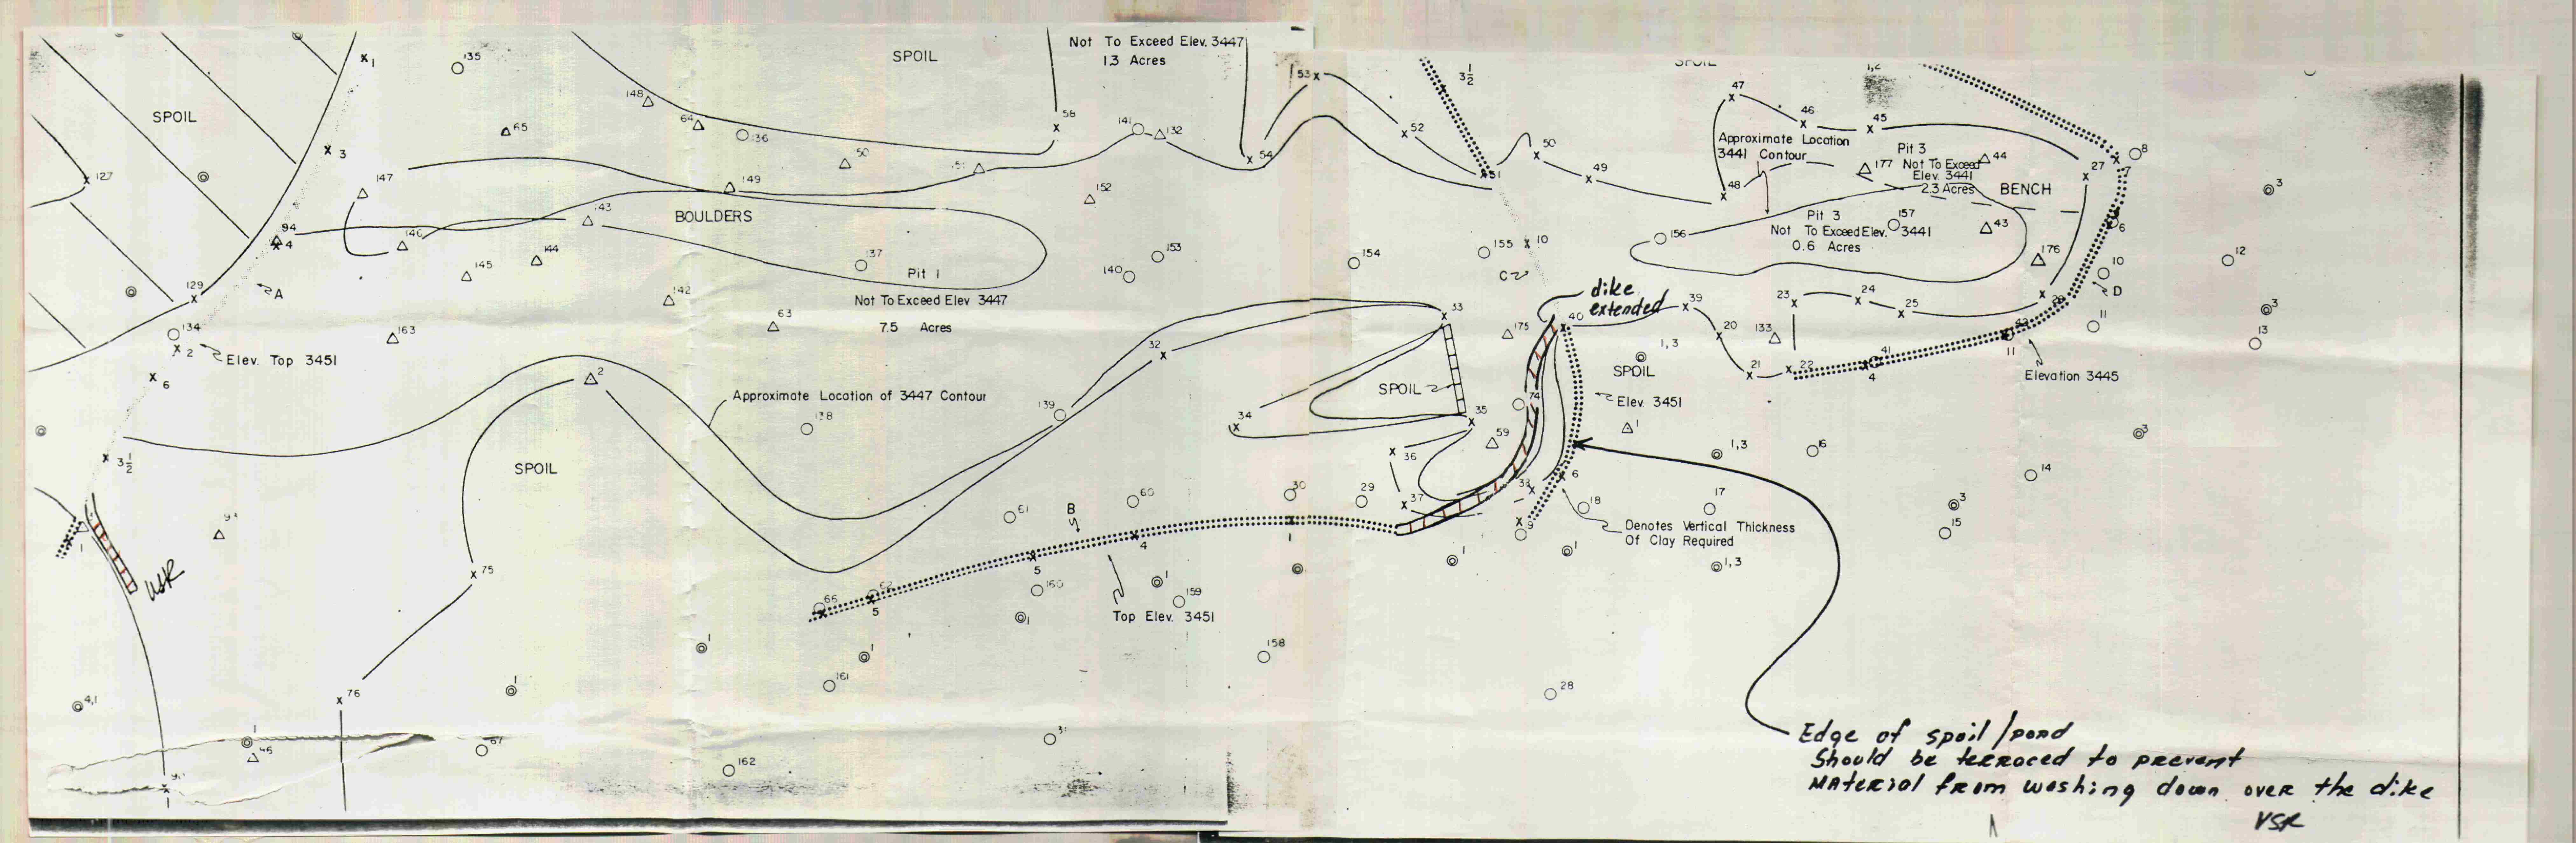 Not To Exceed Elev. 3447
1.3 Acres
SPOIL
SPOIL
SPOIL
1
135
148
65
64
136
50
58
141
132
53
54
52
3 1/2
51
50
49
47
46
45
48
Approximate Location
3441 Contour
Pit 3
Not To Exceed
Elev. 3441
2.3 Acres
177
44
BENCH
27
8
7
3
127
3
147
149
152
143
BOULDERS
94
4
146
144
145
137
Pit 1
Not To Exceed Elev 3447
7.5 Acres
153
140
154
155
10
C
156
Pit 3
Not To Exceed Elev. 3441
0.6 Acres
157
43
176
6
10
D
12
3
129
A
142
63
134
2
Elev. Top 3451
163
6
33
32
dike
extended
40
39
175
20
133
23
24
25
11
13
1,3
SPOIL
21
22
41
4
11
Elevation 3445
2
Approximate Location of 3447 Contour
138
139
34
SPOIL
35
74
Elev. 3451
1
59
36
3 1/2
SPOIL
1,3
16
3
14
37
6
18
17
3
15
9
Denotes Vertical Thickness
Of Clay Required
61
60
30
29
B
4
1
1
1
1,3
USR
75
66
62
5
5
160
1
159
Top Elev. 3451
1
1
1
158
161
28
4,1
76
1
1
67
162
Edge of spoil/pond
Should be terraced to prevent
Material from washing down over the dike
VSR